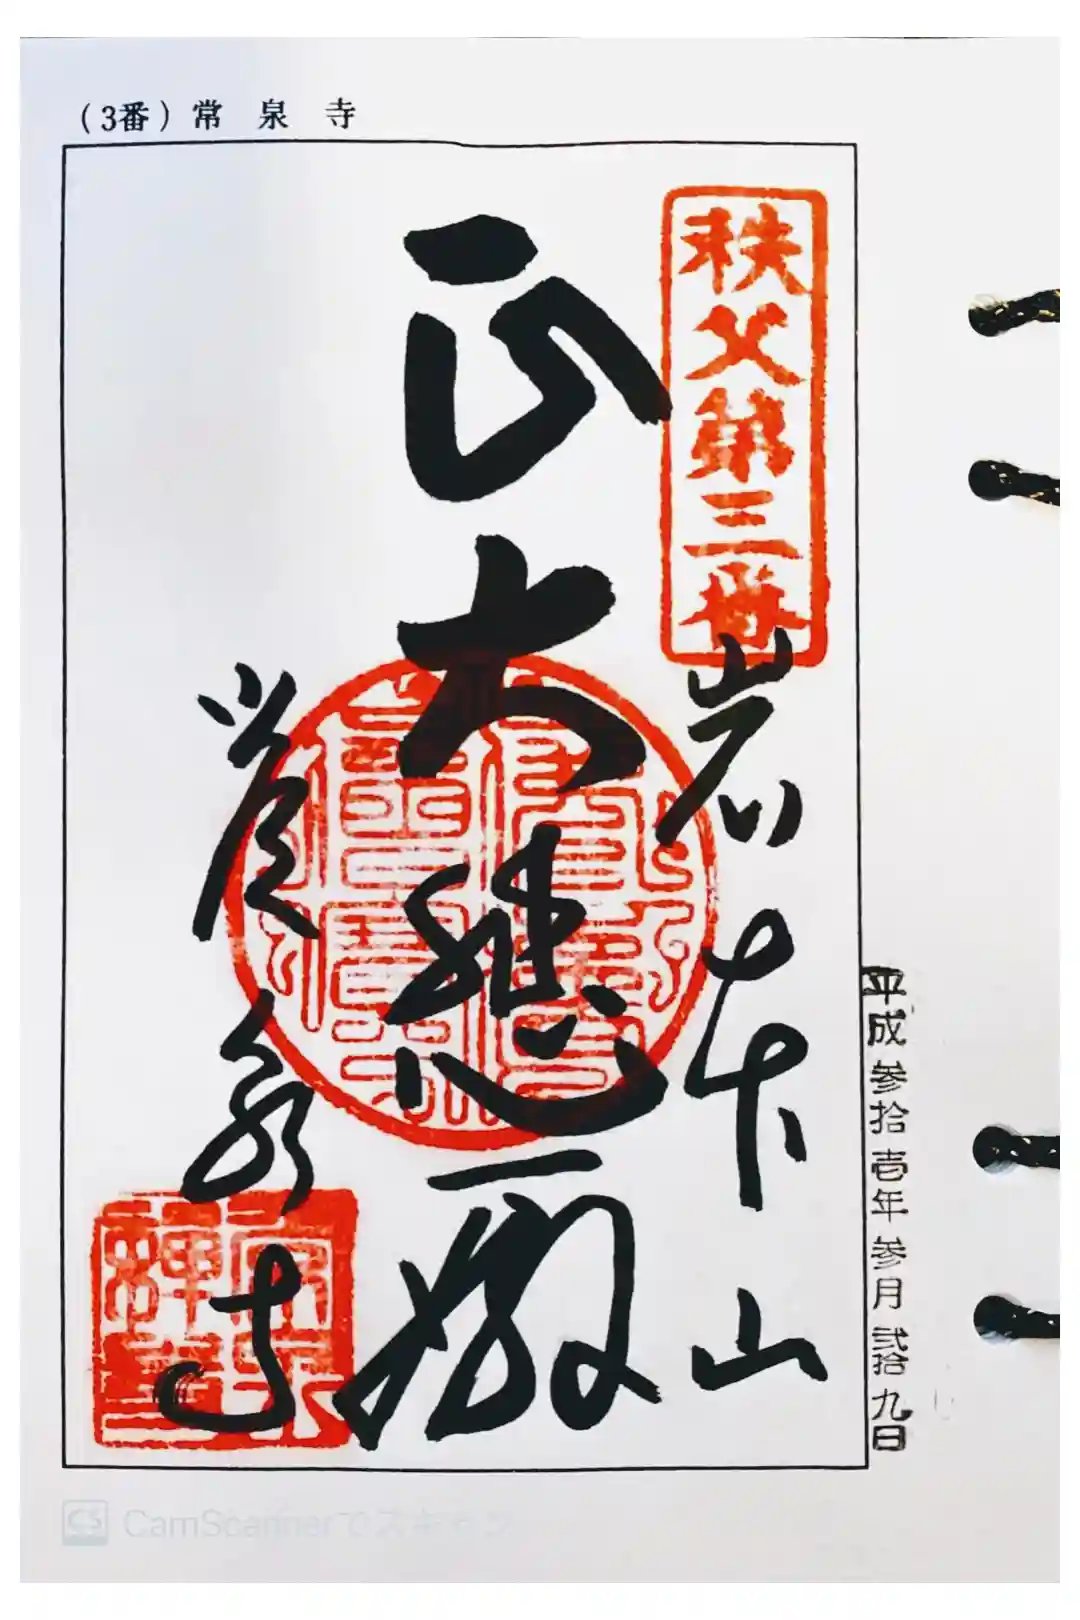 (3番) 常泉寺
秩父第三番
岩本山
正大悲殿
常泉寺
平成参拾壱年参月弐拾九日
CS CamScannerでスキャン